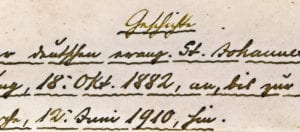 Geschichte
der deutschen evang. St. Johannes
18. Okt. 1882, an, bis zur
12. Juni 1910, hin.